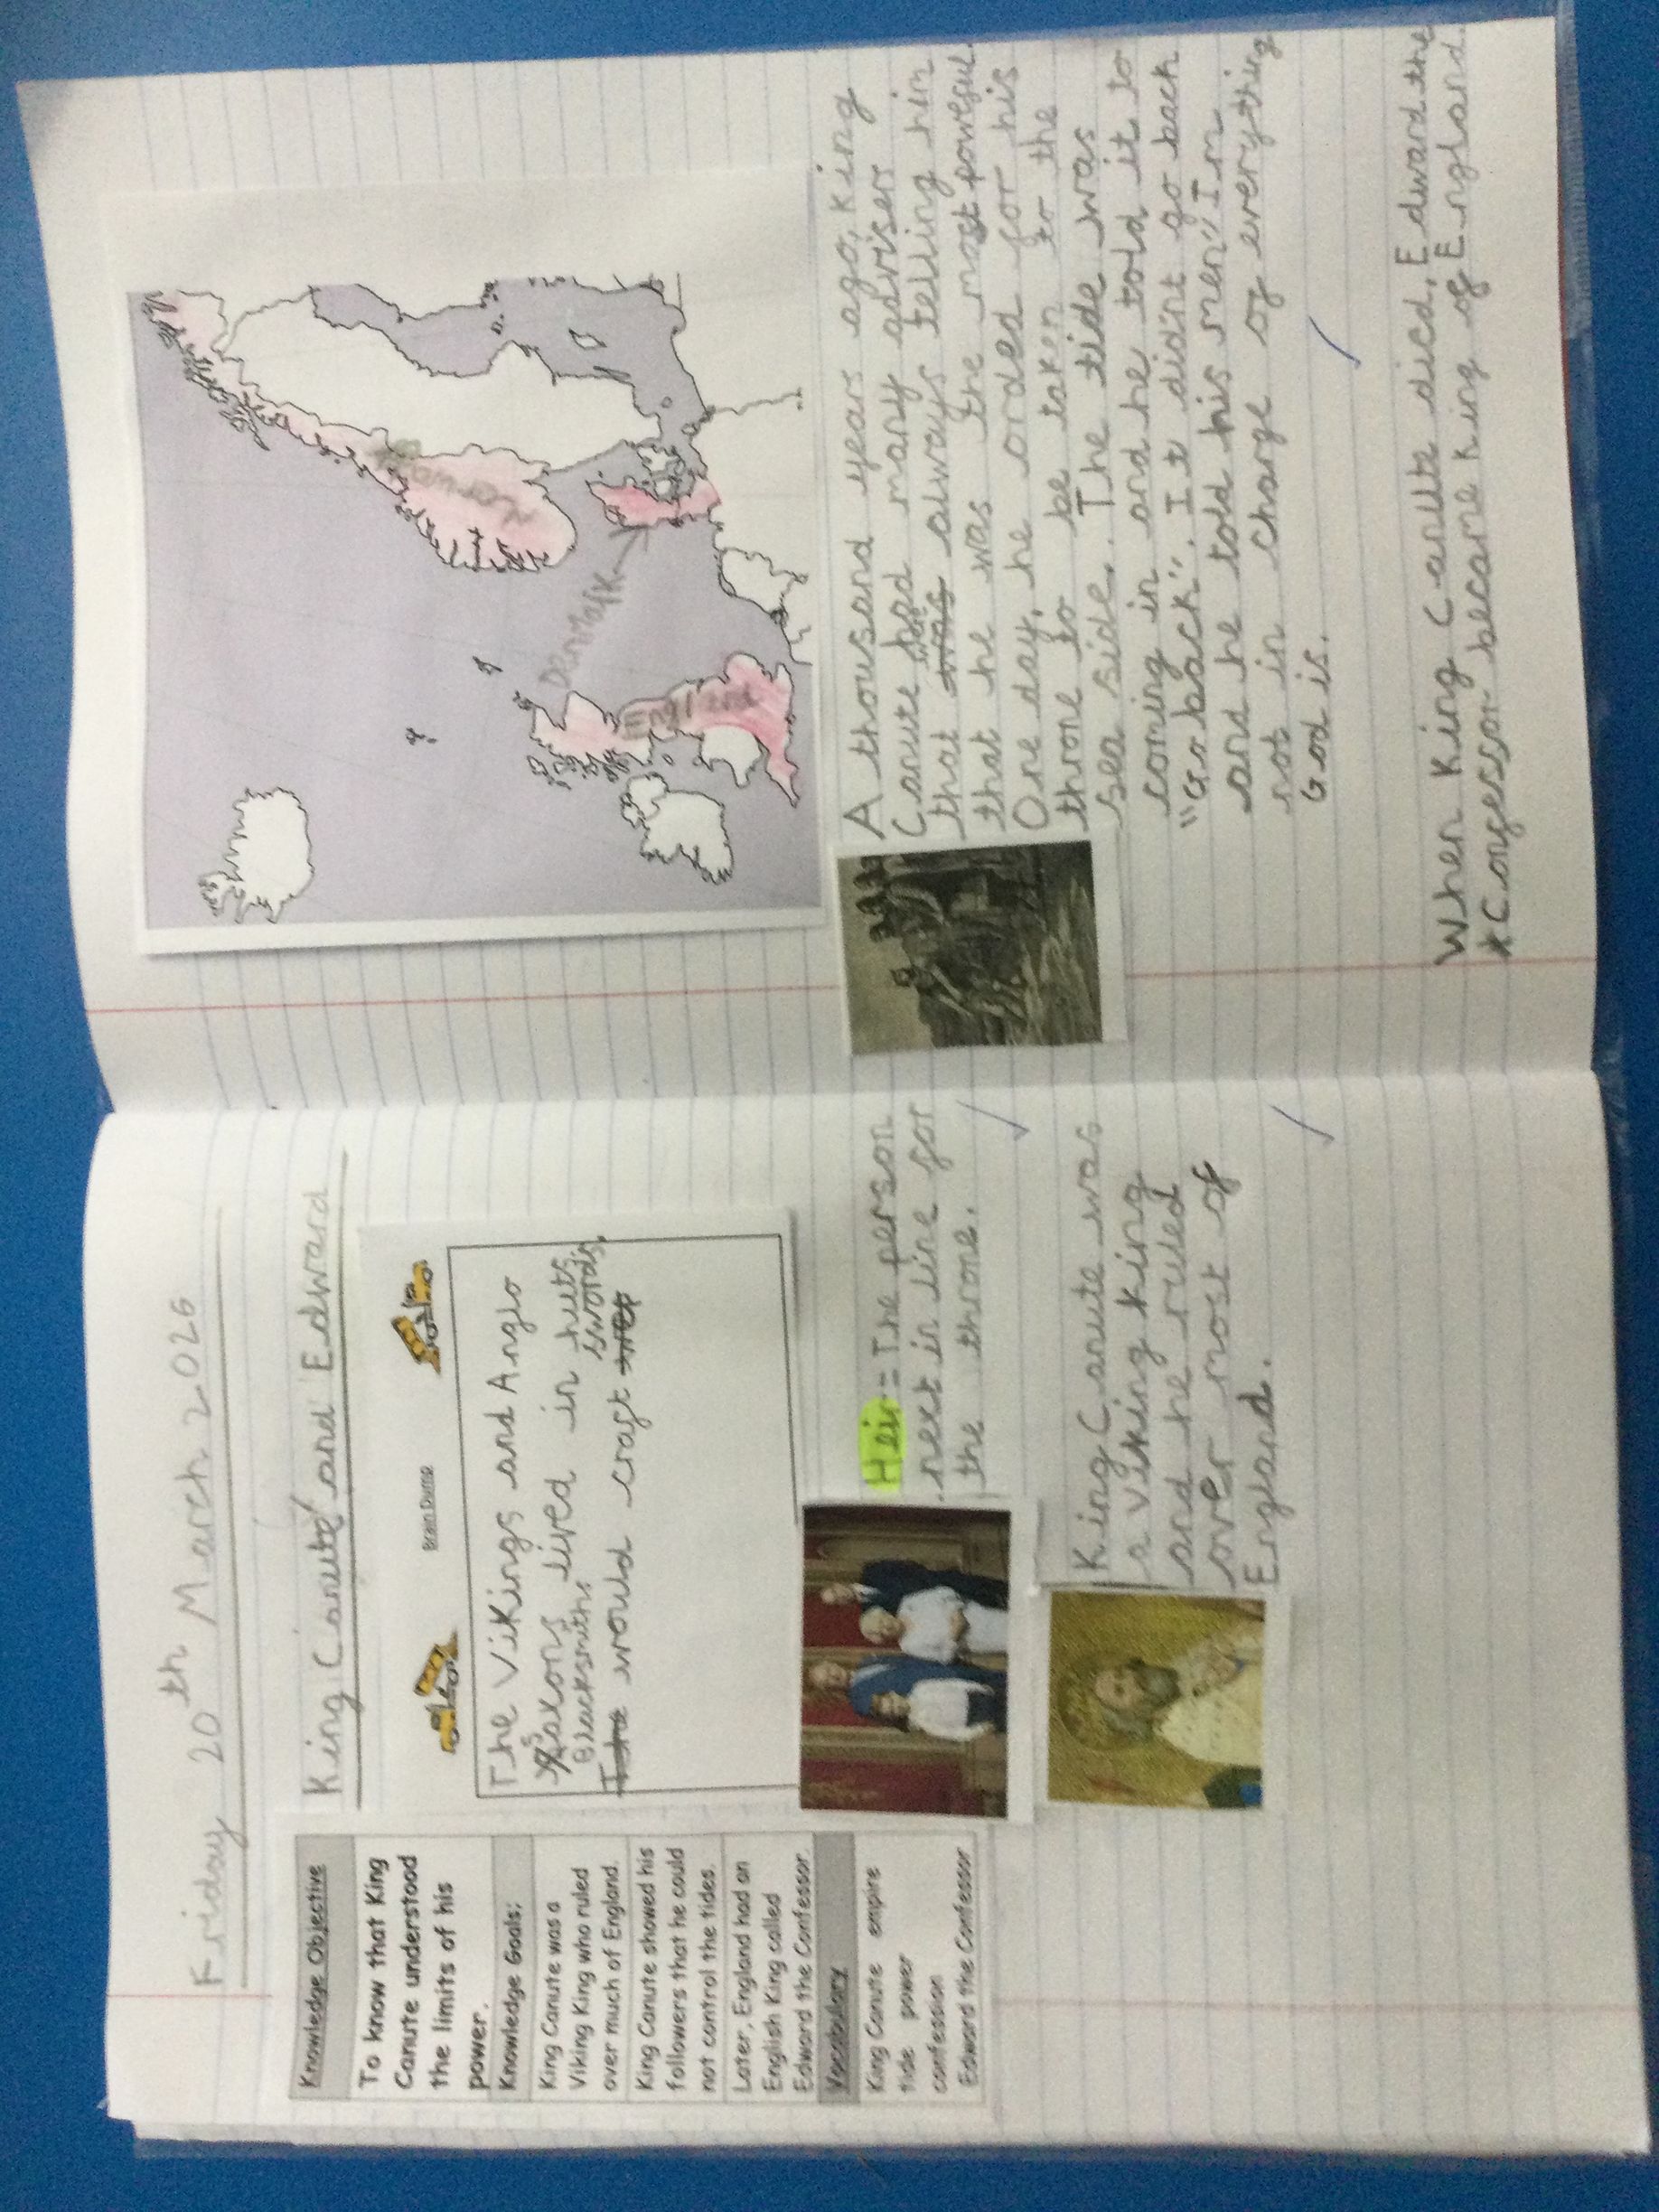 Friday 20th March 2026
King Canute and Edward
Knowledge Objective
To know that King
Canute understood
the limits of his
power.
Knowledge Goals:
King Canute was a
Viking King who ruled
over much of England.
King Canute showed his
followers that he could
not control the tides.
Later, England had an
English King called
Edward the Confessor.
Vocabulary
King Canute empire
tide power
confession
Edward the Confessor
Brain Dump
The Vikings and Anglo
saxons lived in huts
Blacksmiths swords.
would craft
Heir = The person
next in line for
the throne.
King Canute was
a viking king
and he ruled
over most of
England.
Norway
Denmark
England
A thousand years ago, King
Canute had many advisers
that was always telling him
that he was the most powerful.
One day, he orded for his
throne to be taken to the
sea side. The tide was
coming in and he told it to
"Go back". It didn't go back
and he told his men "I m
not in charge of everything
God is.
When King Canute died, Edward the
*Confessor became King of England.